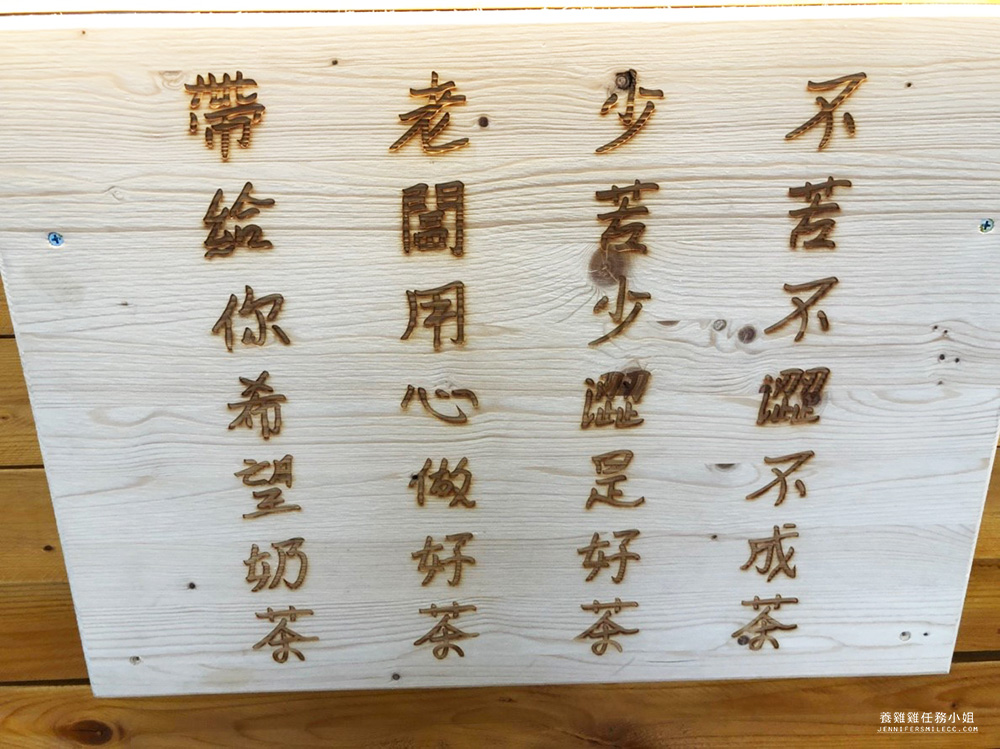 不苦不澀不成茶
少苦少澀是好茶
老闆用心做好茶
帶給你希望奶茶
養雞雞任務小姐
JENNIFERSMILECC.COM